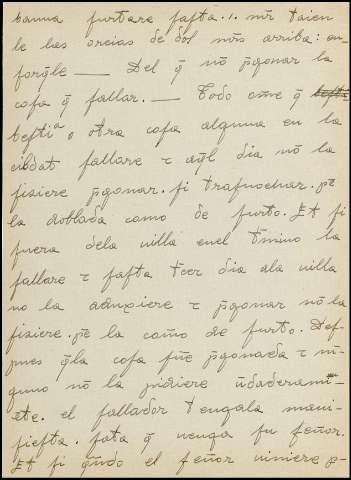 canna furtare fasta .1. mr̃ taien
le las oreias de dos mr̃s arriba: en-
forq̃le — Del q̃ nõ p̃gonar la
cosa q̃ fallar. — Todo ome q̃
bestia o otra cosa alguna en la
cibdat fallare τ aq̃l dia nõ la
fiziere p̃gonar. si trasnochar. pẽ
la doblada como de furto. Et si
fuera dela uilla enel t̃mino la
fallare τ fasta t̃cer dia ala uilla
no la aduxiere τ p̃gonar nõ la
fiziere. pẽ la como de furto. Des-
pues q̃la cosa fũe p̃gonada τ nĩ-
guno nõ la pidiere ũdaderamĩ-
ete. el fallador tengala mani-
fiesta. fata q̃ uenga su señor.
Et si q̃ndo el señor uiniere p-